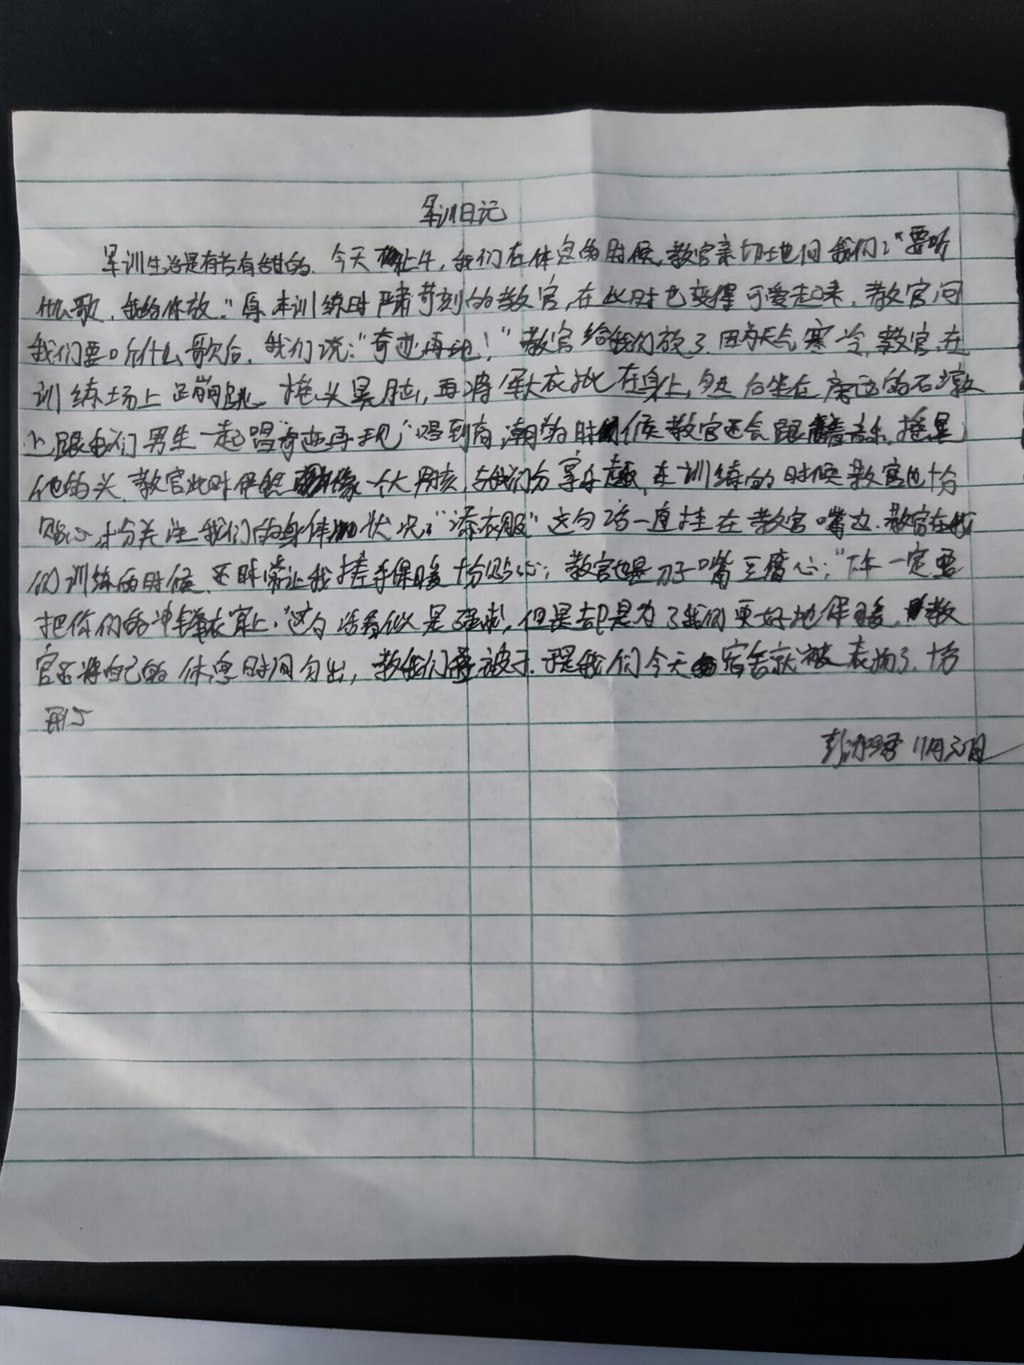 军训日记
军训生活是有苦有甜的.今天上午,我们在休息的时候,教官亲切地问我们:"要听
什么歌,我给你放."原本训练时严肃苛刻的教官,在此时也变得可爱起来,教官问
我们要听什么歌后,我们说:"奇迹再现!"教官给我们放了.因为天气寒冷,教官在
训练场上 头 脑,再将军大衣披在身上,然后坐在旁边的石墩
上,跟我们男生一起唱"奇迹再现"唱到高潮的时候教官还会跟着音乐,摇晃
他的头,教官此时俨然像一个大男孩,与我们分享乐趣,在训练的时候教官也十分
贴心,十分关注我们的身体状况:"添衣服"这句话一直挂在教官嘴边.教官在我
们训练的时候,还时常让我搓手保暖十分贴心;教官也是刀子嘴豆腐心:"下午一定要
把你们的冲锋衣穿上."这句话看似是强求,但是却是为了我们更好地保暖,教
官还将自己的休息时间匀出,教我们叠被子.于是我们今天宿舍就被表扬了.十分
开心
彭 11月 日